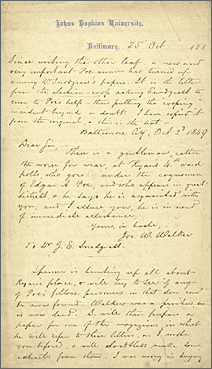 Johns Hopkins University.
Baltimore, 25 Oct 188
Since writing the other leaf a new and
very important Poe answer has turned up
among Dr Snodgrass's papers. It is the letter
from the election-coop asking Snodgrass to
come to Poe's help—thus putting the "cooping"
incident beyond a doubt. I have copied it
from the original, & this is the text—
Baltimore City, Oct 3d 1849
Dear Sir,
There is a gentleman, rather
the worse for wear, at Ryan's 4th ward
polls, who goes under the cognomen
of Edgar A. Poe, and who appears in great
distress, & he says he is acquainted with
you, and I assure you, he is in need
of immediate assistance.
Yours, in haste,
Jos. W. Walker
To Dr J. E. Snodgrass.
Spencer is hunting up all about
place, & will try to see if any
of Poe's fellow-prisoners in that den can
be now found. Walker was a printer, &
is now dead. S. will then prepare a
paper for one of the magazines, in which
he will refer to these letters, as I wrote
you before, & will doubtless make some
extracts from them. I was wrong in saying